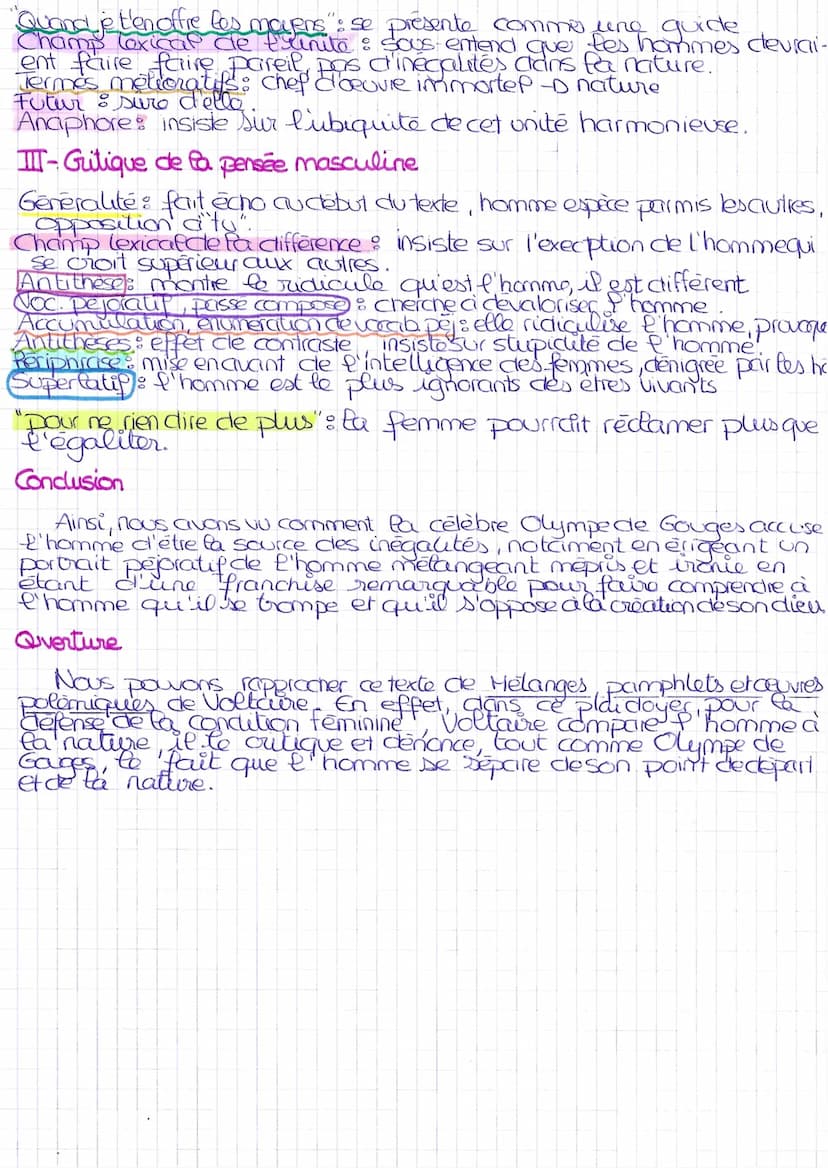 "Quand je t'en offre les moyens" : se présente comme une guide
Champ lexical de l'unité : sous-entend que les hommes devrai-
ent faire faire pareil, pas d'inégalités dans la nature.
Termes mélioratifs : chef d'oeuvre immortel → nature
Futur : sure d'elle.
Anaphore : insiste sur l'ubiquité de cet unité harmonieuse.
III- Critique de la pensée masculine
Généralité : fait écho au début du texte, homme espèce parmis les autres,
opposition à "tu".
Champ lexical de la différence : insiste sur l'exeception de l'homme qui
se croit supérieur aux autres.
Antithèse : montre le ridicule qu'est l'homme, il est différent
Voc. péjoratif, passé composé : cherche à dévaloriser l'homme.
Accumulation, énumération de vocab péj : elle ridiculise l'homme, provoque
Antithèses : effet de contraste, insiste sur stupidité de l'homme
Périphrase : mise en avant de l'intelligence des femmes, dénigrée par les ho
Superlatif : l'homme est le plus ignorants des êtres vivants
"pour ne rien dire de plus" : la femme pourrait réclamer plus que
l'égaliter.
Conclusion
Ainsi, nous avons vu comment la célèbre Olympe de Gouges accuse
l'homme d'être la source des inégalités, notamment en érigeant un
portrait péjoratif de l'homme mélangeant mépris et ironie en
étant d'une franchise remarquable pour faire comprendre à
l'homme qu'il se trompe et qu'il s'oppose à la création de son dieu
Ouverture
Nous pouvons rapprocher ce texte de Mélanges, pamphlets et œuvres
polémiques de Voltaire. En effet, dans ce plaidoyer pour la
défense de la condition féminine, Voltaire compare l'homme à
la nature, il le critique et dénonce, tout comme Olympe de
Gouges, le fait que l'homme se sépare de son point de départ
et de la nature.